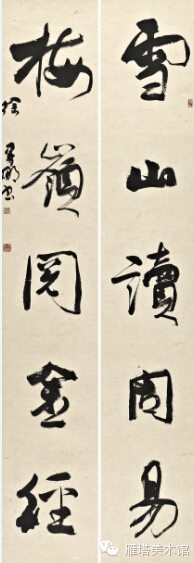 雪山讀周易
梅嶺閱金經
徐
雁塔美术馆